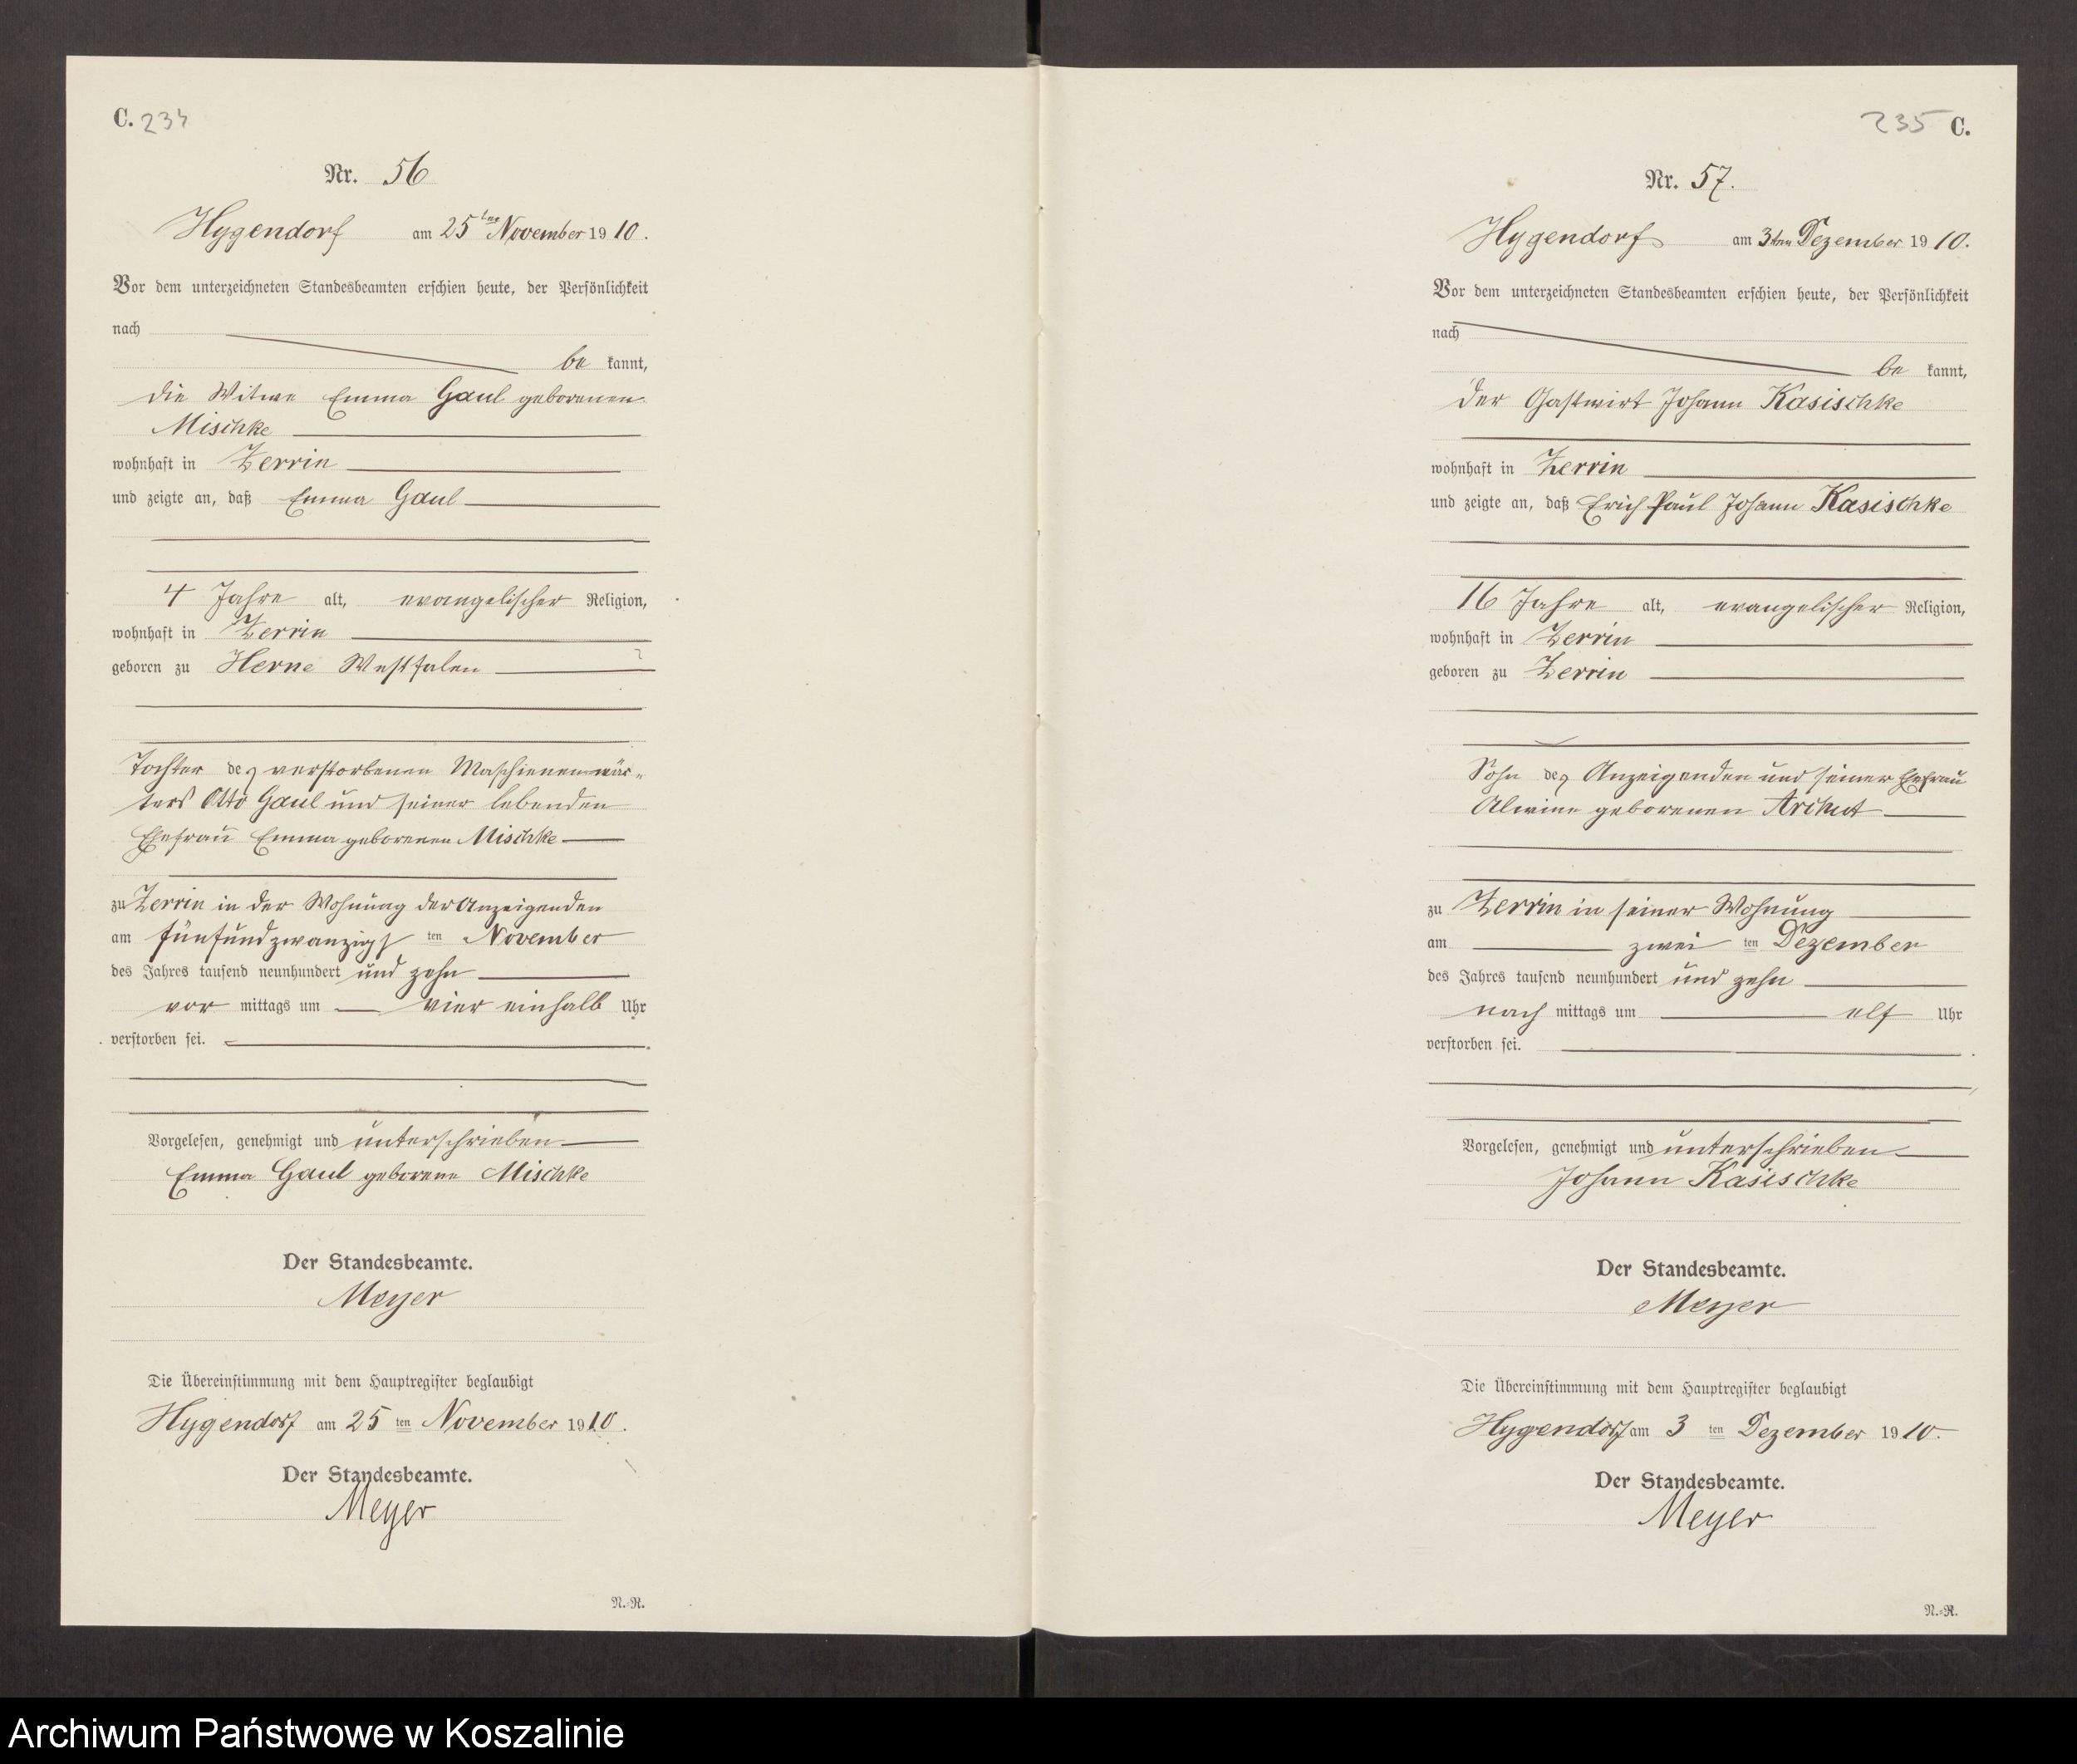 C. 234
Nr. 56
Hygendorf am 25ten November 1910.
Vor dem unterzeichneten Standesbeamten erschien heute, der Persönlichkeit
nach
be kannt,
die Witwe Emma Gaul geborenen
Mischke
wohnhaft in Zerrin
und zeigte an, daß Emma Gaul
4 Jahre alt, evangelischer Religion,
wohnhaft in Zerrin
geboren zu Herne Westfalen
Tochter des verstorbenen Maschienenwär-
ters Otto Gaul und seiner lebenden
Ehefrau Emma geborenen Mischke
zu Zerrin in der Wohnung der Anzeigenden
am fünfundzwanzigsten November
des Jahres tausend neunhundert und zehn
vor mittags um vier einhalb Uhr
verstorben sei.
Vorgelesen, genehmigt und unterschrieben
Emma Gaul geborene Mischke
Der Standesbeamte.
Meyer
Die Übereinstimmung mit dem Hauptregister beglaubigt
Hygendorf am 25 ten November 1910.
Der Standesbeamte.
Meyer
N.-R.
235 C.
Nr. 57.
Hygendorf am 3ten Dezember 1910.
Vor dem unterzeichneten Standesbeamten erschien heute, der Persönlichkeit
nach
be kannt,
der Gastwirt Johann Kasischke
wohnhaft in Zerrin
und zeigte an, daß Erich Paul Johann Kasischke
16 Jahre alt, evangelischer Religion,
wohnhaft in Zerrin
geboren zu Zerrin
Sohn des Anzeigenden und seiner Ehefrau
Alwine geborenen Archut
zu Zerrin in seiner Wohnung
am zwei ten Dezember
des Jahres tausend neunhundert und zehn
nach mittags um elf Uhr
verstorben sei.
Vorgelesen, genehmigt und unterschrieben
Johann Kasischke
Der Standesbeamte.
Meyer
Die Übereinstimmung mit dem Hauptregister beglaubigt
Hygendorf am 3 ten Dezember 1910.
Der Standesbeamte.
Meyer
N.-R.
Archiwum Państwowe w Koszalinie